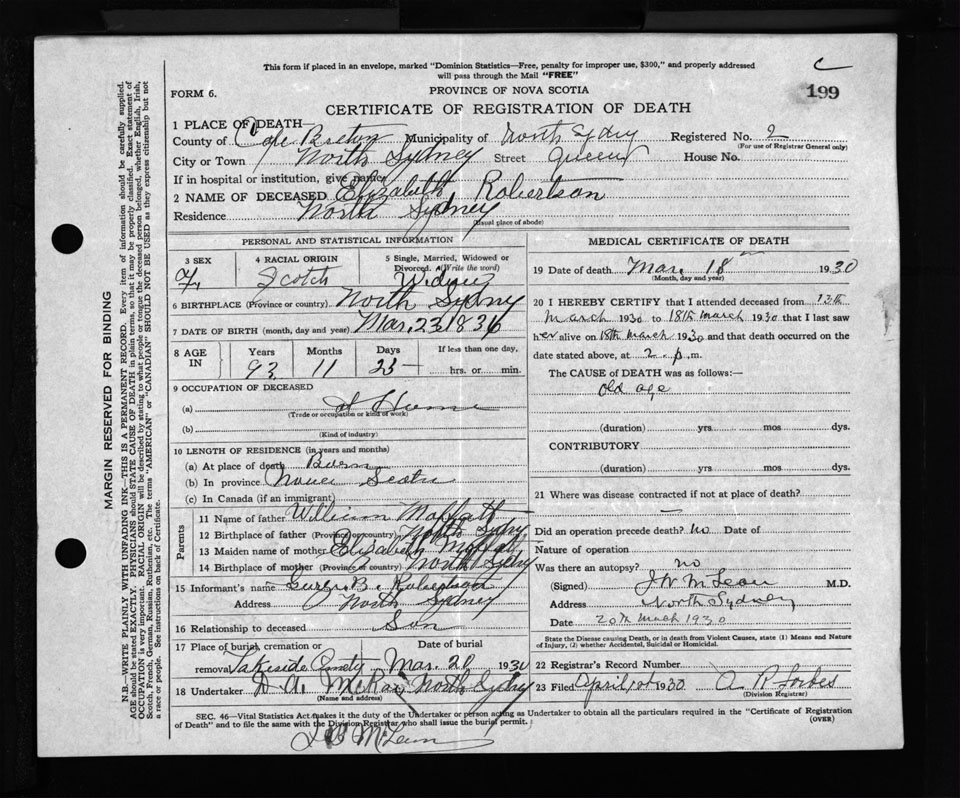 This form if placed in an envelope, marked "Dominion Statistics—Free, penalty for improper use, $300," and properly addressed
will pass through the Mail "FREE"
C
199
FORM 6.
PROVINCE OF NOVA SCOTIA
CERTIFICATE OF REGISTRATION OF DEATH
1 PLACE OF DEATH
County of Cape Breton Municipality of North Sydney Registered No. 2
(For use of Registrar General only)
City or Town North Sydney Street Queen House No.
If in hospital or institution, give name
2 NAME OF DECEASED Elizabeth Robertson
Residence North Sydney
(Usual place of abode)
PERSONAL AND STATISTICAL INFORMATION
3 SEX F.
4 RACIAL ORIGIN Scotch
5 Single, Married, Widowed or Divorced. (Write the word) Widow
6 BIRTHPLACE (Province or country) North Sydney
7 DATE OF BIRTH (month, day and year) Mar. 23 1836
8 AGE IN Years 93 Months 11 Days 23 If less than one day, hrs. or min.
9 OCCUPATION OF DECEASED
(a) At Home
(Trade or occupation or kind of work)
(b)
(Kind of industry)
10 LENGTH OF RESIDENCE (in years and months)
(a) At place of death Born
(b) In province Nova Scotia
(c) In Canada (if an immigrant)
Parents
11 Name of father William Moffatt
12 Birthplace of father (Province or country) North Sydney
13 Maiden name of mother Elizabeth Moffatt
14 Birthplace of mother (Province or country) North Sydney
15 Informant's name B. Robertson
Address North Sydney
16 Relationship to deceased Son
17 Place of burial, cremation or removal Lakeside Cemetery Date of burial Mar. 20 1930
18 Undertaker D. A. McKay North Sydney
(Name and address)
MEDICAL CERTIFICATE OF DEATH
19 Date of death Mar. 18 1930
(Month, day and year)
20 I HEREBY CERTIFY that I attended deceased from 13th
March 1930 to 18th March 1930 that I last saw
her alive on 18th March 1930 and that death occurred on the
date stated above, at 2 p.m.
The CAUSE of DEATH was as follows:—
Old age
(duration) yrs mos dys.
CONTRIBUTORY
(duration) yrs mos dys.
21 Where was disease contracted if not at place of death?
—
Did an operation precede death? No Date of
Nature of operation
Was there an autopsy? no
(Signed) J W McLean M.D.
Address North Sydney
Date 20th March 1930
State the Disease causing Death, or in death from Violent Causes, state (1) Means and Nature
of Injury, (2) whether Accidental, Suicidal or Homicidal.
22 Registrar's Record Number
23 Filed April 1930 A R Forbes
(Division Registrar)
SEC. 46—Vital Statistics Act makes it the duty of the Undertaker or person acting as Undertaker to obtain all the particulars required in the "Certificate of Registration
of Death" and to file the same with the Division Registrar who shall issue the burial permit.
(OVER)
McLean
MARGIN RESERVED FOR BINDING
N.B.—WRITE PLAINLY WITH UNFADING INK—THIS IS A PERMANENT RECORD. Every item of information should be carefully supplied.
AGE should be stated EXACTLY. PHYSICIANS should STATE CAUSE OF DEATH in plain terms, so that it may be properly classified. Exact statement of
OCCUPATION is very important. RACIAL ORIGIN will be described by stating to what people or tongue the deceased person belonged, whether English, Irish,
Scotch, French, German, Russian, Ruthenian, etc. The terms "AMERICAN" or "CANADIAN" SHOULD NOT BE USED as they express citizenship but not
a race or people. See instructions on back of Certificate.